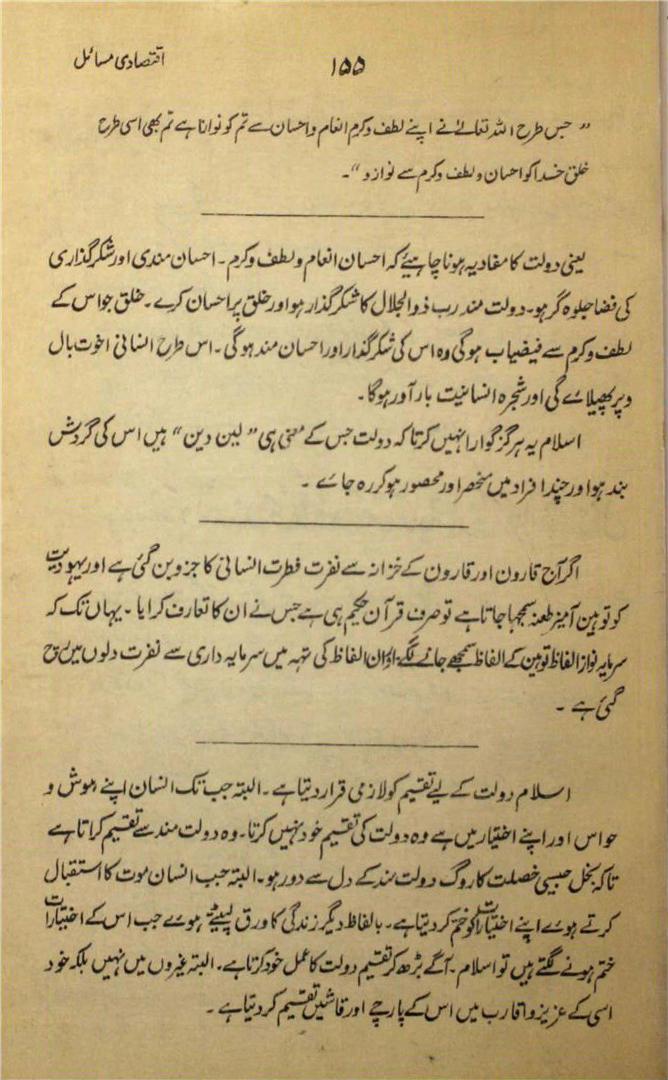 اقتصادی مسائل
۱۵۵
” جس طرح اللہ تعالےٰ نے اپنے لطف وکرم انعام واحسان سے تم کو نوازا ہے تم بھی اسی طرح
خلق خدا کو احسان ولطف وکرم سے نوازو “۔
یعنی دولت کا مفاد یہ ہونا چاہیئے کہ احسان انعام ولطف وکرم ۔ احسان مندی اور شکر گذاری
کی فضا جلوہ گر ہو۔ دولت مند رب ذوالجلال کا شکر گذار ہو اور خلق پر احسان کرے۔ خلق جو اس کے
لطف وکرم سے فیضیاب ہوگی وہ اس کی شکر گذار اور احسان مند ہوگی ۔ اس طرح انسانی اخوت بال
وپر پھیلائے گی اور شجرہ انسانیت بار آور ہوگا۔
اسلام یہ ہرگز گوارا نہیں کرتا کہ دولت جس کے معنی ہی ” لین دین “ ہیں اس کی گردش
بند ہو اور چند افراد میں منحصر اور محصور ہو کر رہ جائے ۔
اگر آج قارون اور قارون کے خزانہ سے نفرت فطرت انسانی کا جزو بن گئی ہے اور یہودیت
کو توہین آمیز طعنہ سمجھا جاتا ہے تو صرف قرآن حکیم ہی ہے جس نے ان کا تعارف کرایا ۔ یہاں تک کہ
سرمایہ نواز الفاظ توہین کے الفاظ سمجھے جانے لگے اور ان الفاظ کی تہہ میں سرمایہ داری سے نفرت دلوں میں رچ
گئی ہے ۔
اسلام دولت کے لیے تقسیم کو لازمی قرار دیتا ہے ۔ البتہ جب تک انسان اپنے ہوش و
حواس اور اپنے اختیار میں ہے وہ دولت کی تقسیم خود نہیں کرتا۔ وہ دولت مند سے تقسیم کراتا ہے
تاکہ بخل جیسی خصلت کا روگ دولت مند کے دل سے دور ہو۔ البتہ جب انسان موت کا استقبال
کرتے ہوئے اپنے اختیارات کو ختم کر دیتا ہے۔ بالفاظ دیگر زندگی کا ورق لپیٹتے ہوئے جب اس کے اختیارات
ختم ہونے لگتے ہیں تو اسلام ۔ آگے بڑھ کر تقسیم دولت کا عمل خود کرتا ہے۔ البتہ غیروں میں نہیں بلکہ خود
اسی کے عزیز و اقارب میں اس کے پارچے اور قاشیں تقسیم کر دیتا ہے ۔